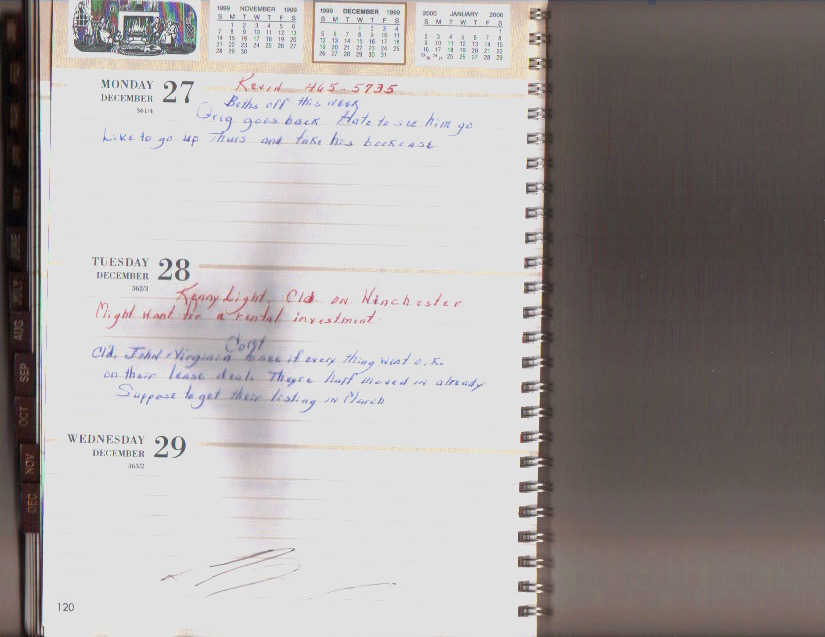 1999 NOVEMBER 1999
S M T W T F S
1 2 3 4 5 6
7 8 9 10 11 12 13
14 15 16 17 18 19 20
21 22 23 24 25 26 27
28 29 30
1999 DECEMBER 1999
S M T W T F S
1 2 3 4
5 6 7 8 9 10 11
12 13 14 15 16 17 18
19 20 21 22 23 24 25
26 27 28 29 30 31
2000 JANUARY 2000
S M T W T F S
1
2 3 4 5 6 7 8
9 10 11 12 13 14 15
16 17 18 19 20 21 22
25 26 27 28 29
MONDAY 27
DECEMBER
361/4
Kevin 465-5735
Beths off this week
Greg goes back Hate to see him go
Like to go up Thurs and take his bookcase
TUESDAY 28
DECEMBER
362/3
Kenny Light, Cld. on Winchester
Might want for a rental investment
Cld. John & Virginia Corst to see if every thing went o.k.
on their lease deal. Theyre half moved in already
Suppose to get their listing in March
WEDNESDAY 29
DECEMBER
363/2
JUNE
JULY
AUG
SEP
OCT
NOV
DEC
120